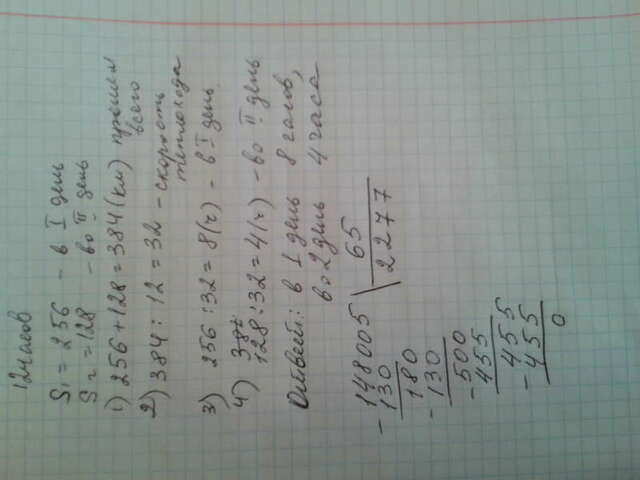 12 часов
S₁ = 256 - в I день
S₂ = 128 - во II день
1) 256 + 128 = 384 (км) прошел всего
2) 384 : 12 = 32 - скорость теплохода
3) 256 : 32 = 8 (ч) - в I день
4) 128 : 32 = 4 (ч) - во II день
Ответ: в 1 день 8 часов,
во 2 день 4 часа
148005 | 65
- 130 | 2277
180
- 130
500
- 455
455
- 455
0